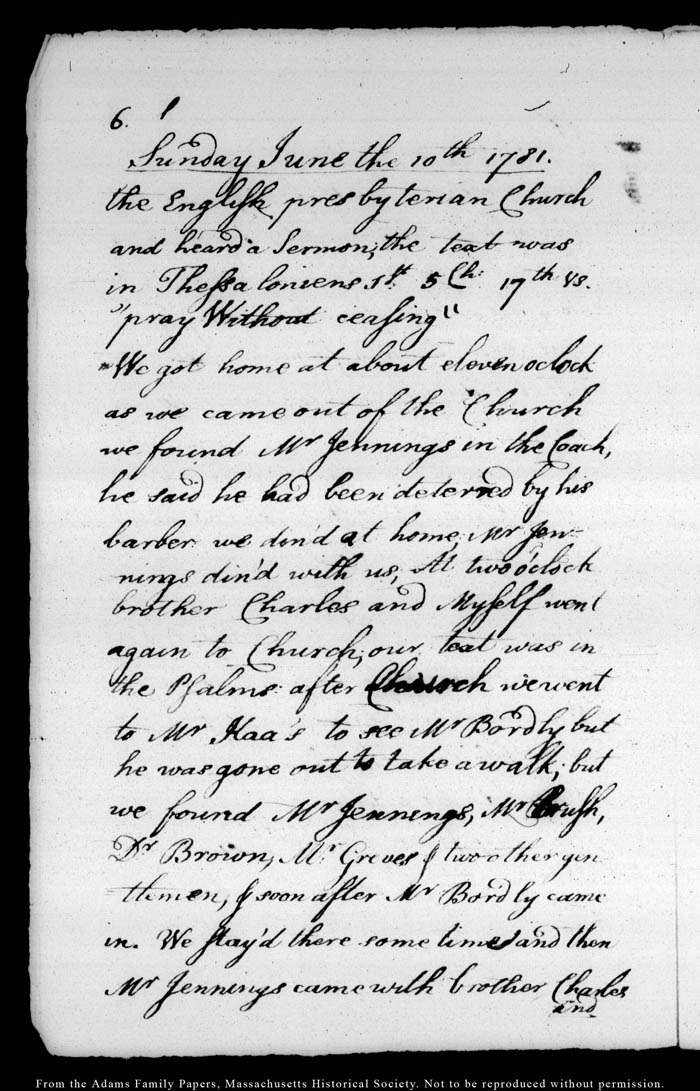 6.
Sunday June the 10th 1781.
the English presbyterian Church
and heard a Sermon; the text was
in Thessaloniens 1st. 5 Ch: 17th vs.
"pray Without ceasing"
We got home at about eleven oclock
as we came out of the Church
we found Mr Jennings in the Coach,
he said he had been deterred by his
barber. we din'd at home. Mr Jen=
nings din'd with us, At two o'clock
brother Charles and Myself went
again to Church; our text was in
the Psalms. after Church we went
to Mr Haa's to see Mr Bordly but
he was gone out to take a walk; but
we found Mr Jennings, Mr Brush,
Dr Brown, Mr. Greves & two other gen
tlemen, & soon after Mr Bordly came
in. We stay'd there some time and then
Mr Jennings came with brother Charles
and
From the Adams Family Papers, Massachusetts Historical Society. Not to be reproduced without permission.